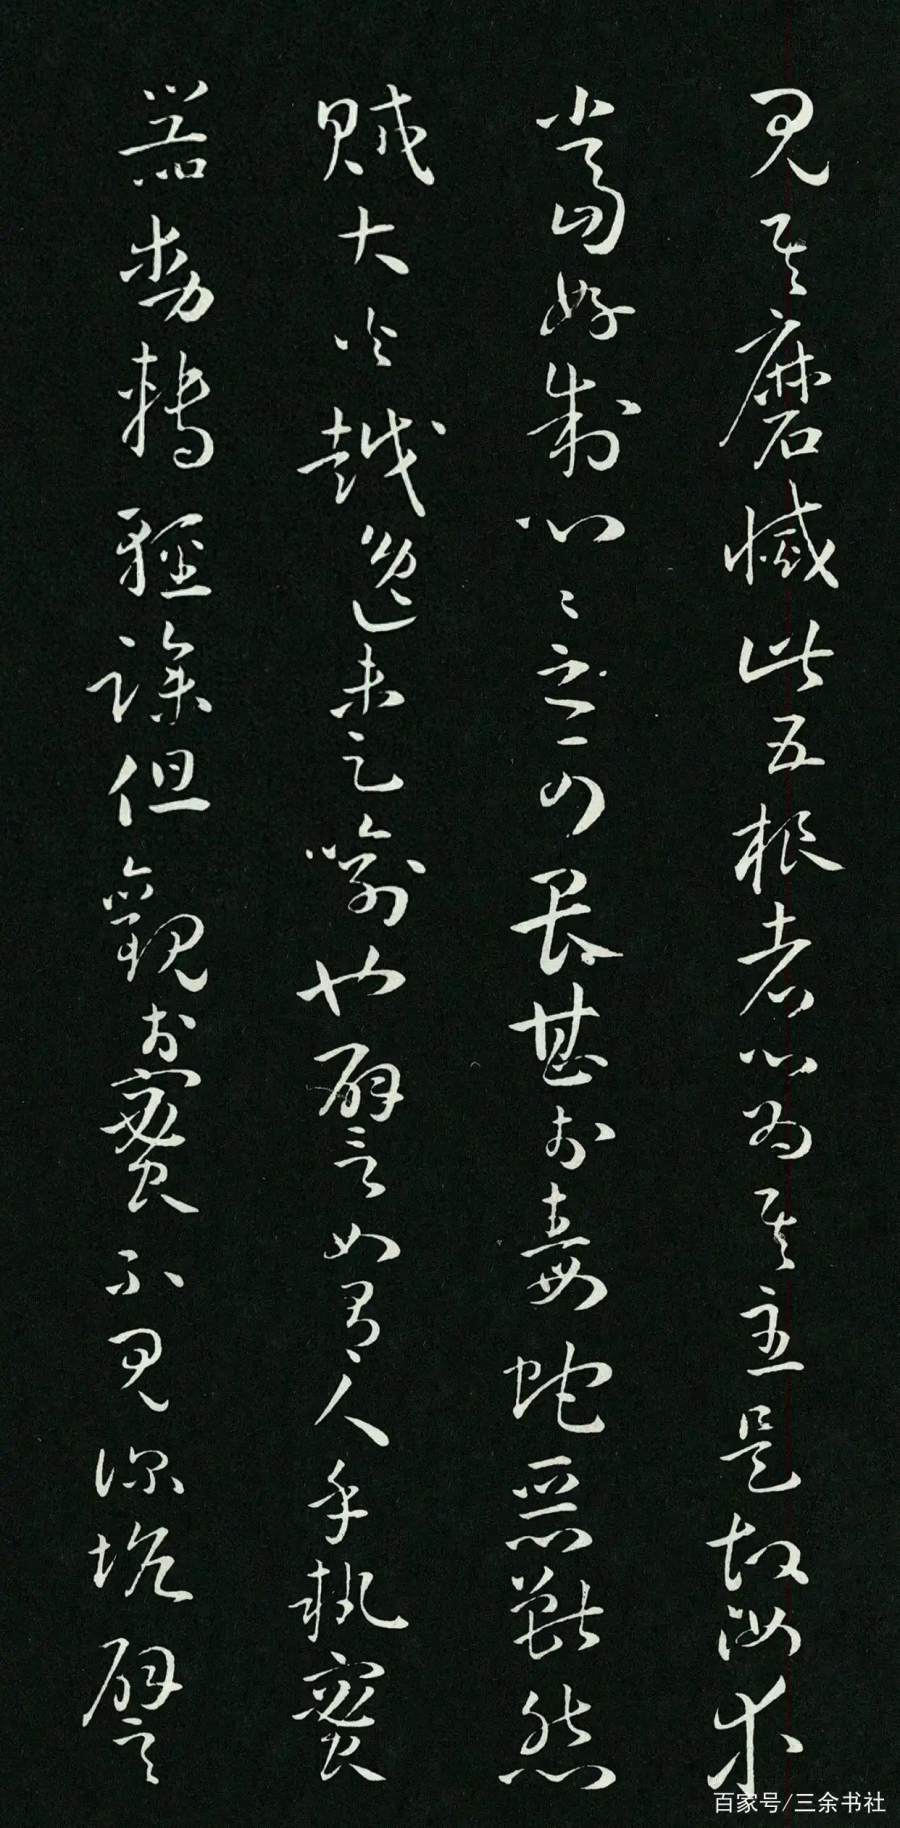 見其磨滅此五根者心為其主是故汝等
當好制心〻之可畏甚於毒蛇惡獸怨
賊大火越逸未足喻也譬如有人手執蜜
器動轉輕躁但觀於蜜不見深坑譬
百家号/三余书社